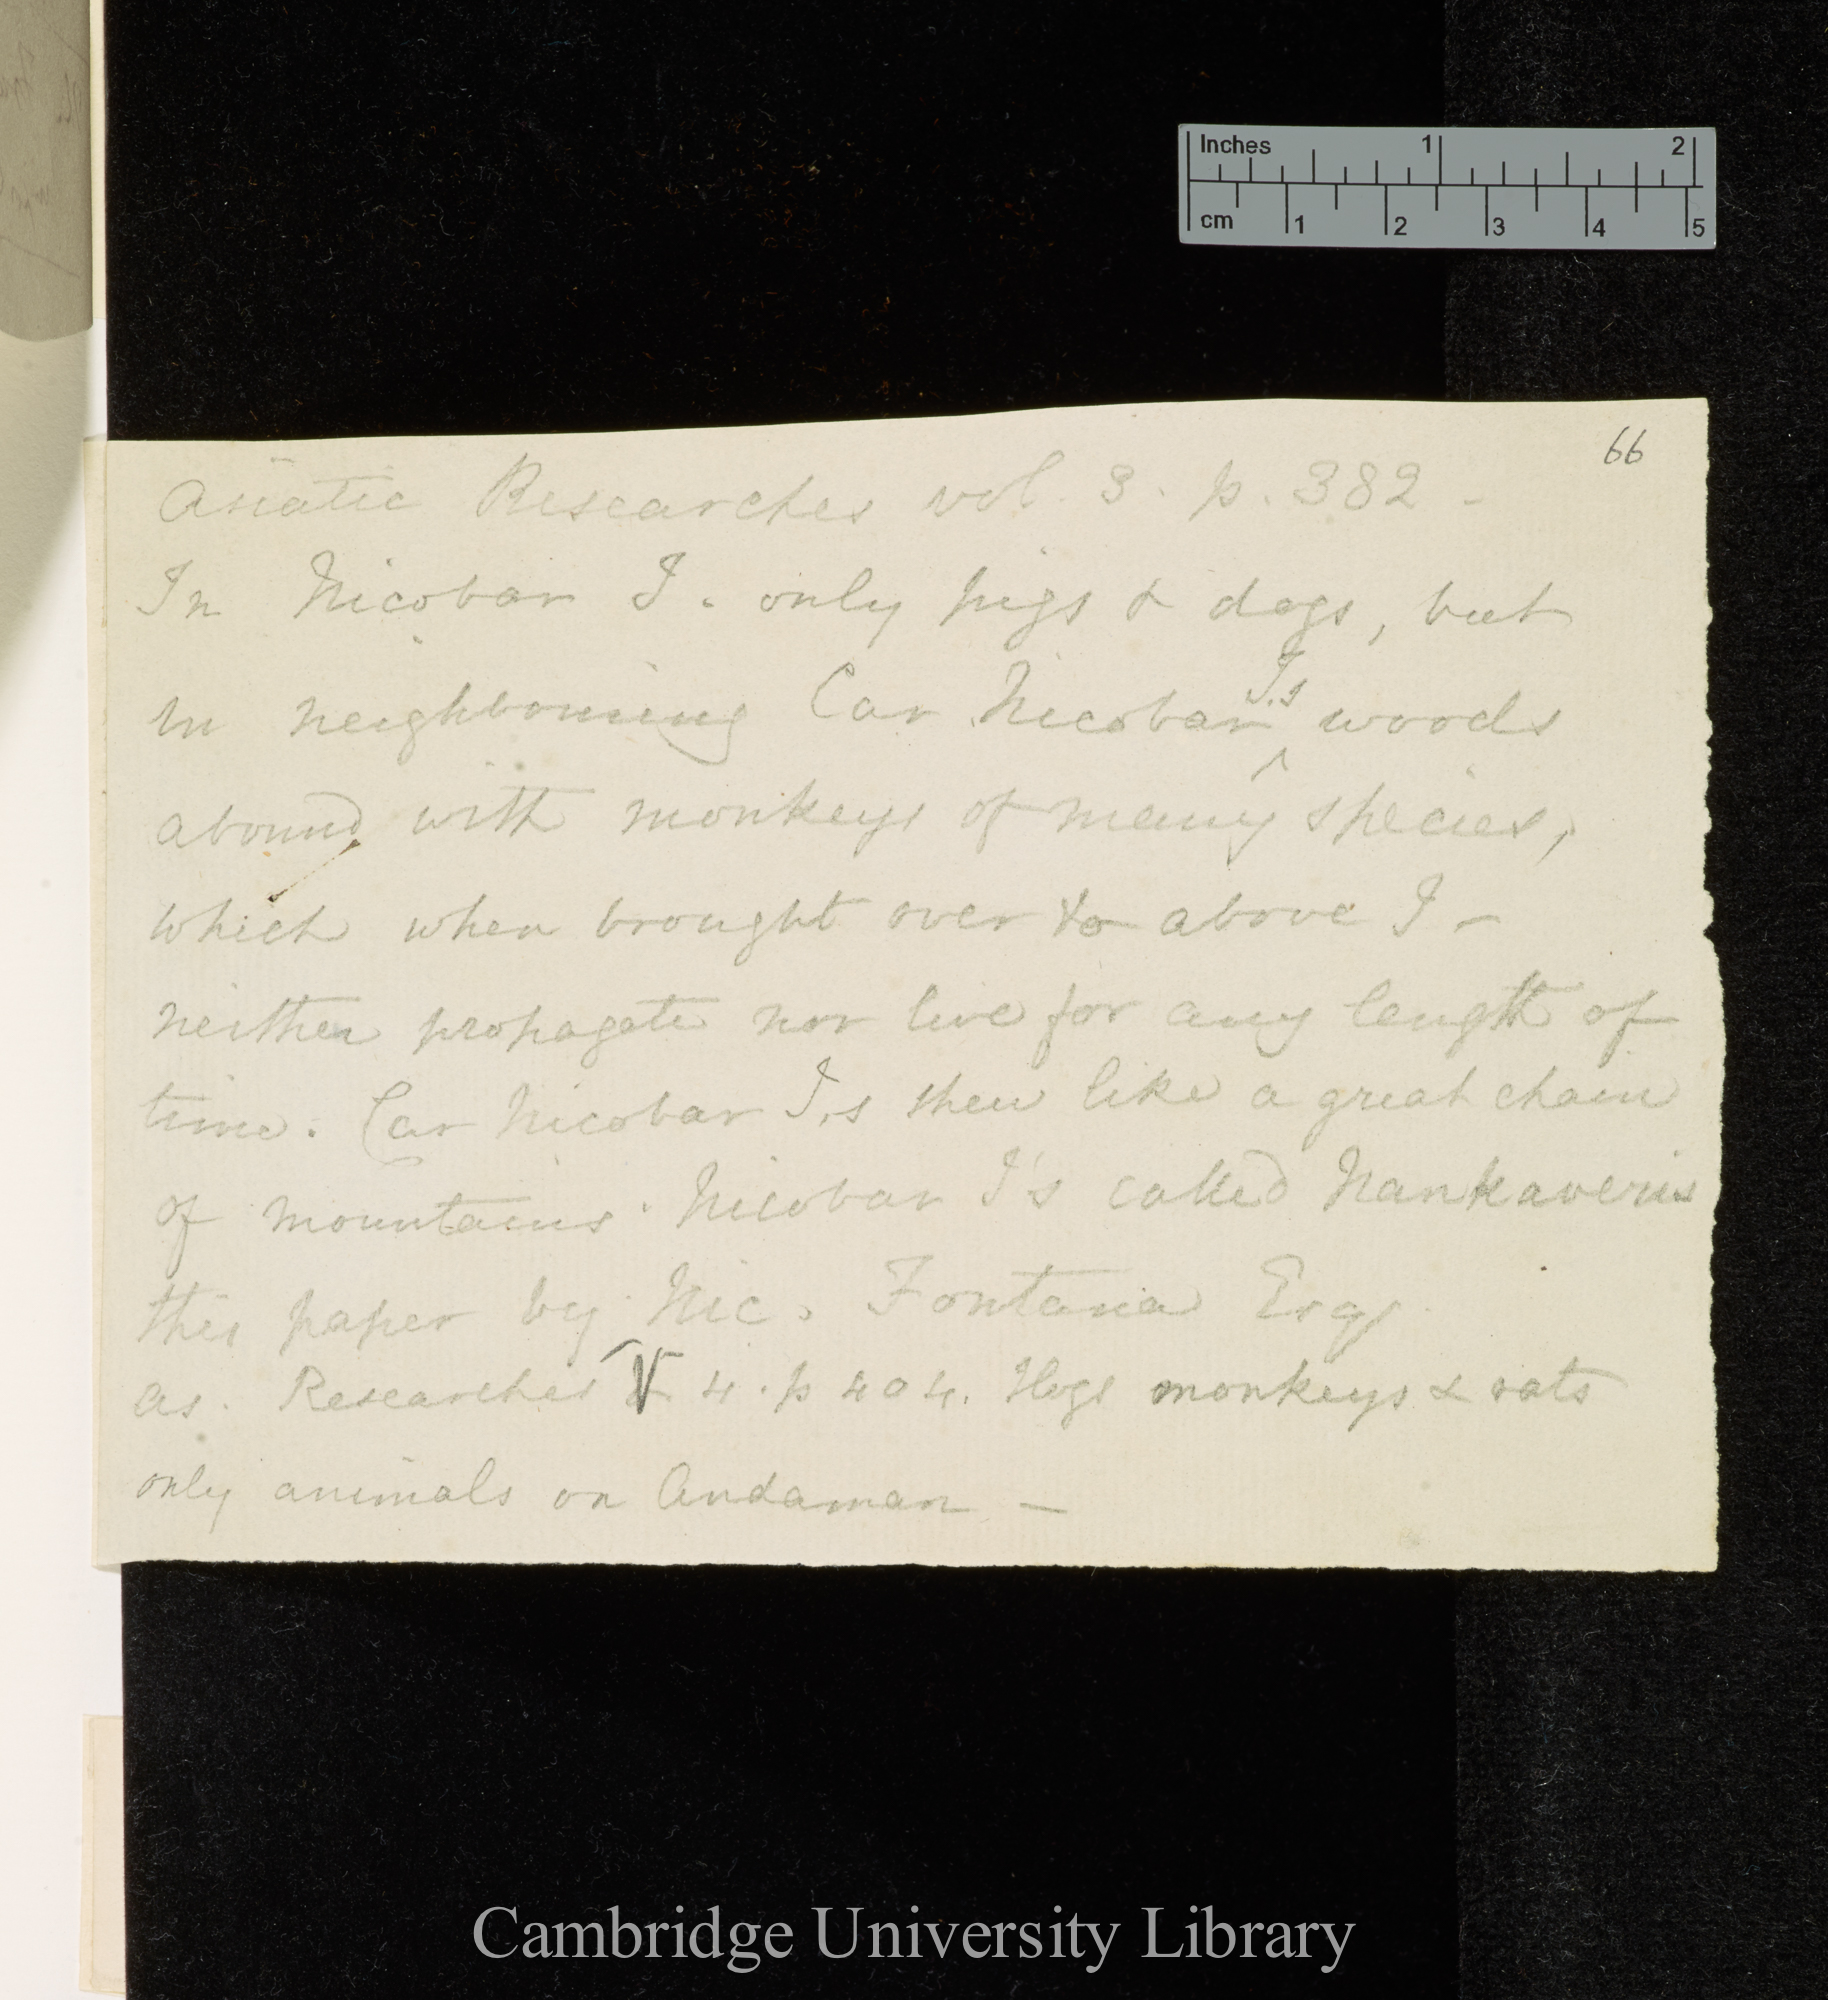 Inches 1 2
cm 1 2 3 4 5
66
Asiatic Researches vol. 3. p. 382 -
In Nicobar I. only pigs & dogs, but
in neighbouring Car Nicobar I.s woods
abound with monkeys of many species,
which when brought over to above I -
neither propagate nor live for any length of
time. Car Nicobar I.s shew like a great chain
of mountains. Nicobar I's called Nankaveris
this paper by Nic. Fontana Esq
As. Researches V 4. p 404. Hogs monkeys & rats
only animals on Andaman —
Cambridge University Library